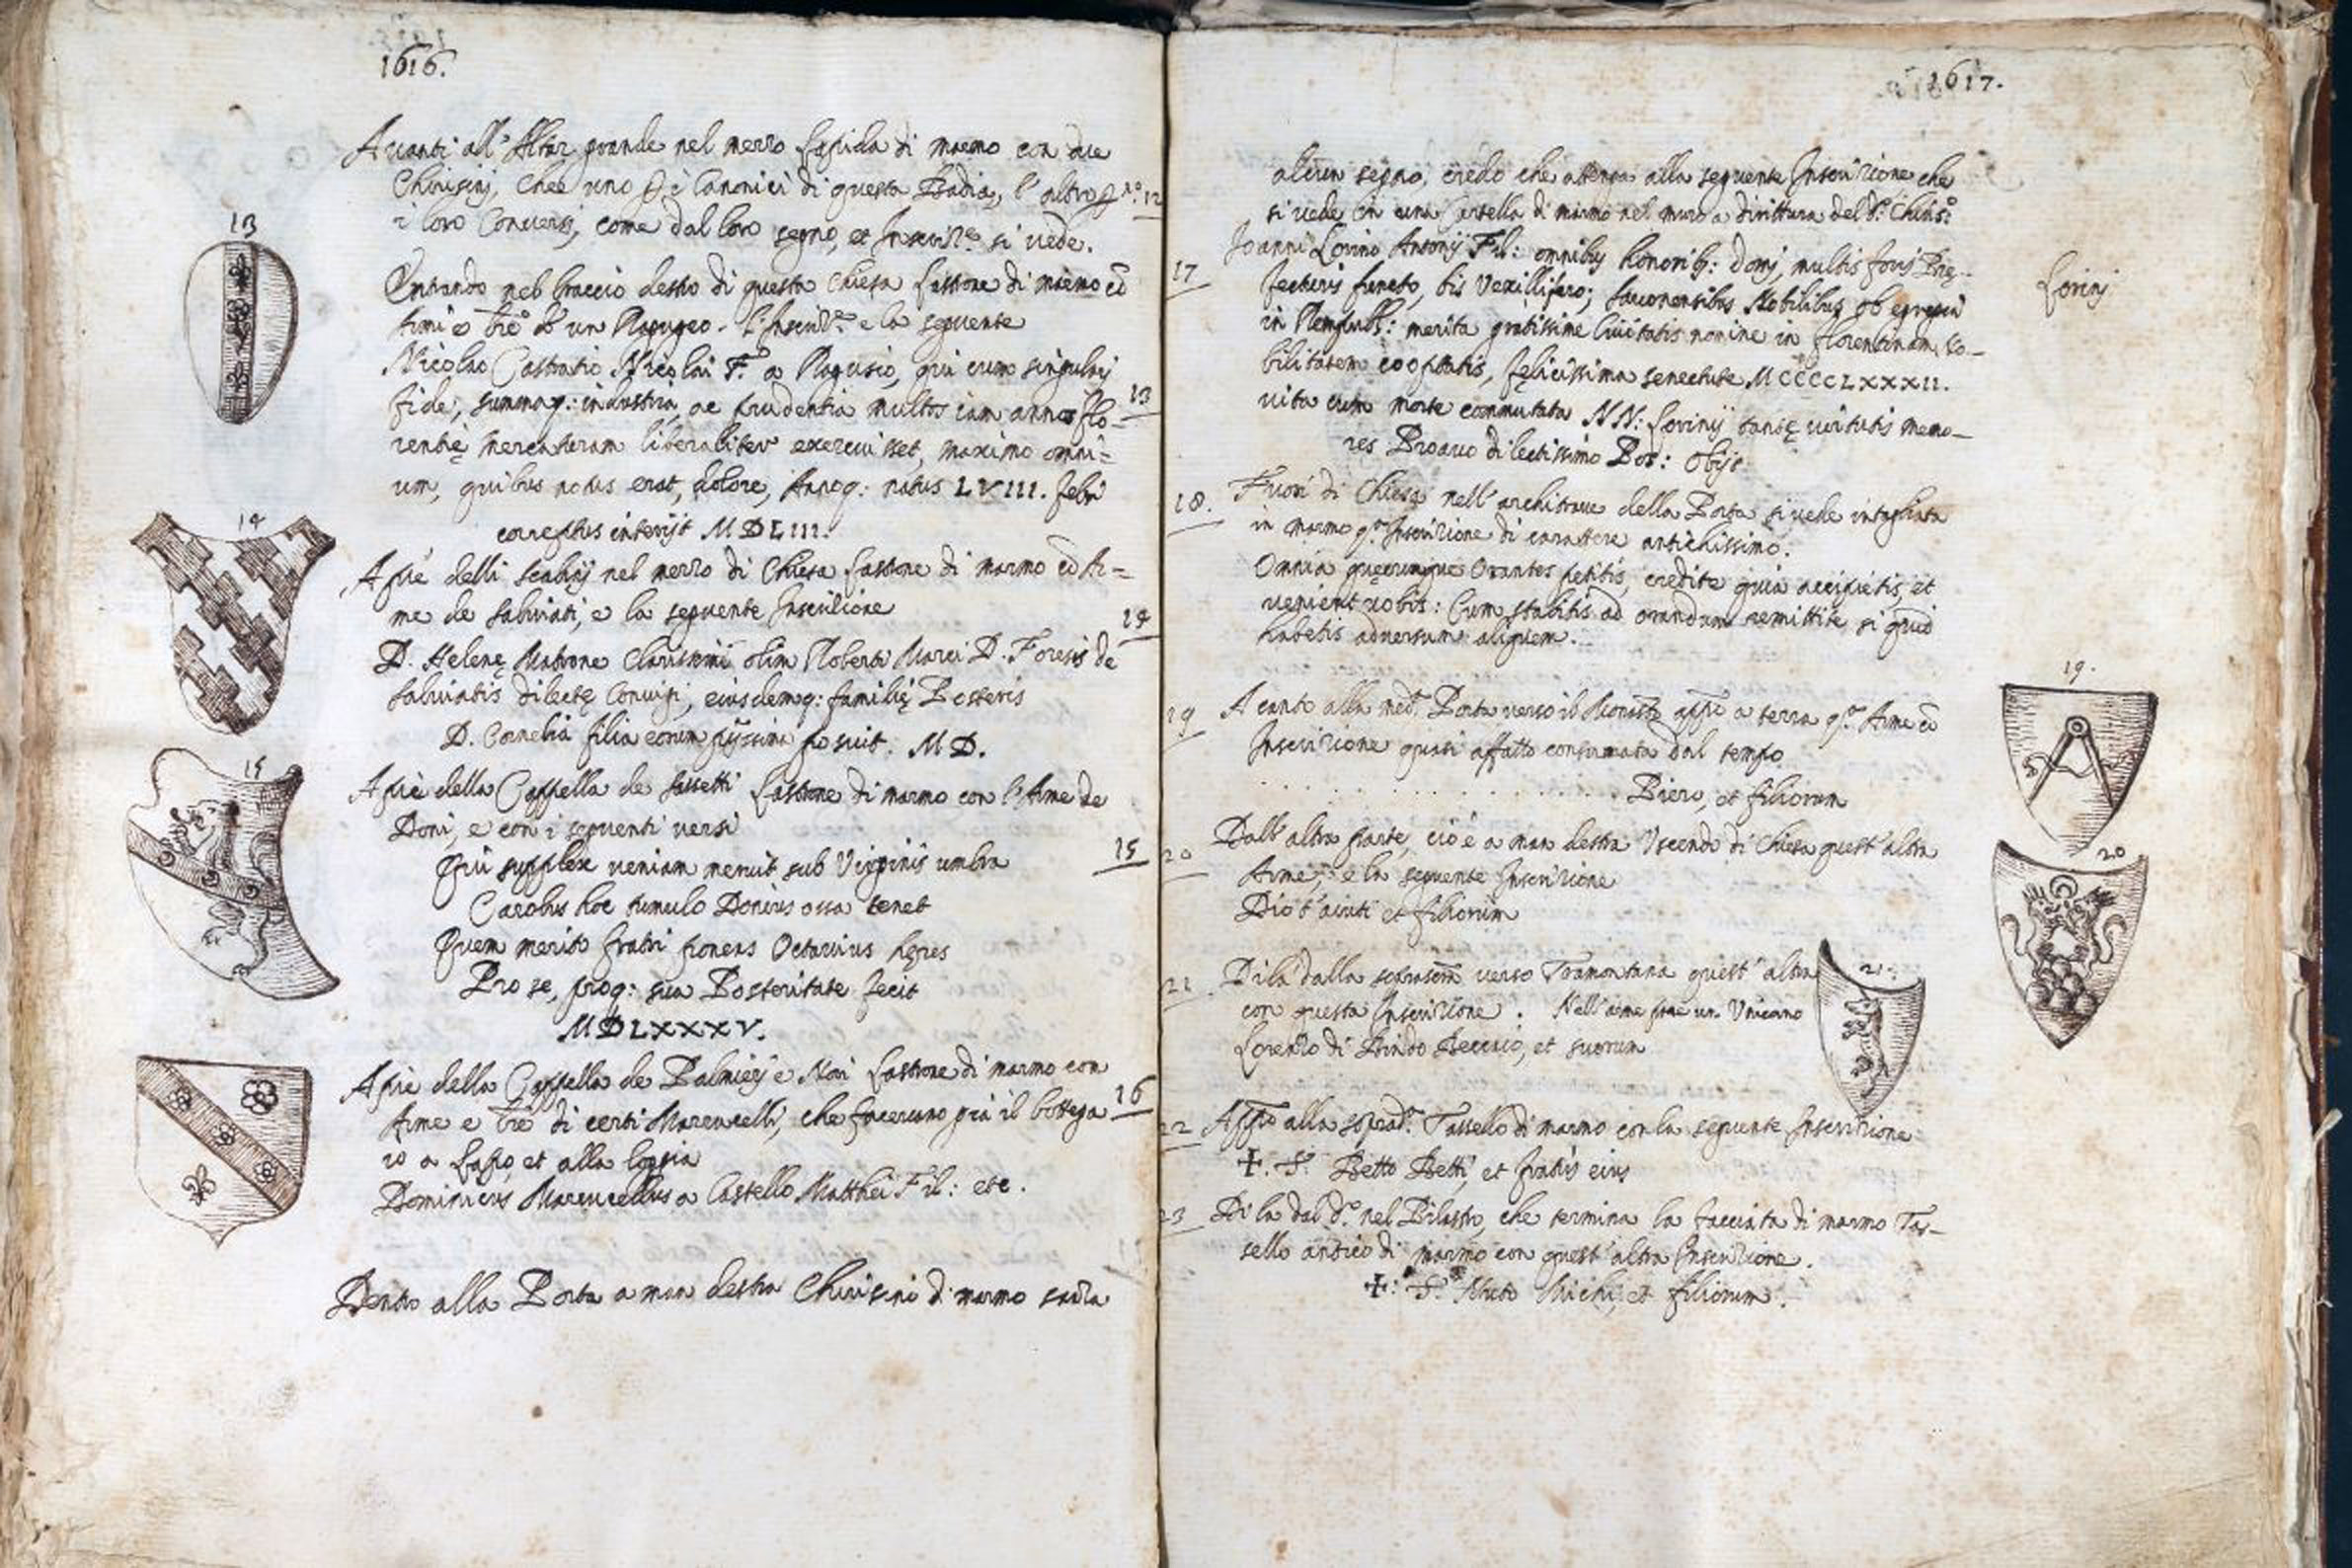 1616.
Avanti all'Altar grande nel mezzo Lapida di marmo con due
Chiusini, che uno p i Canonici di questa Badia, l'altro p 12
i loro Conversi, come dal loro segno, et Inscrizne si vede.
13
Entrando nel braccio destro di questa Chiesa Lastrone di marmo cō
Armi e di un Raguseo. l'Inscrizne e la seguente
Nicolao Nicolai F. a Ragusio, qui cum singulari
13
fide, summaq: industria, ac prudentia multos iam annos Flo-
rentię mercaturam liberaliter exercuisset, maximo omni=
um, quibus notus erat, dolore, Annoq: natus LVIII. febri
correptus interijt MDLIII.
14
A piè delli scalini nel mezzo di Chiesa Lastrone di marmo cō Ar=
me de Salviati, e la seguente Inscrizione
14
D. Helenę Matrone Clarissimi olim Roberti Marci D. Foresis de
Salviatis dilectę Coniugi, eiusdemq: familię Posteris
D. Cornelia filia eorum pijssima posuit. MD.
15
A piè della Cappella de Sassetti Lastrone di marmo con l'Arme de
Doni, e con i seguenti versi
15
Qui supplex veniam meruit sub Virginis umbra
Carolus hoc tumulo Donius ossa tenet
Quem merito fratri ponens Octavius hęres
Pro se, proq: sua Posteritate fecit
MDLXXXV.
A piè della Cappella de Palmieri e Neri Lastrone di marmo con
16
Arme e di certi Marcucelli, che facevano già il bottega
io a Lapo, et alla loggia
Dominicus Marcucellus a Castello Matthei Fil: etc.
Dentro alla Porta a man destra Chiusino di marmo senza
1617.
alcun segno, credo che attenga alla seguente Inscrizione che
si vede in una Cartella di marmo nel muro a dirittura del do. Chiuso:
17
Joanni Lorino Antonij Fil: omnibus honorib: domi, multis foris Prę-
Lorini
fecturis functo, bis Vexillifero; Savonensibus Nobilibus ob egregia
in Rempubl: merita gratissime Civitatis nomine in florentinam No-
bilitatem cooptatis, fęlicissima senectute MCCCCLXXXII.
vita cum morte commutata NN: Lorinij tantę virtutis memo-
res Proavo dilectissimo Pos: obijt
18.
Fuori di Chiesa nell'architrave della Porta si vede intagliata
in marmo qta Inscrizione di carattere antichissimo.
Omnia quęcunque Orantes petitis, credite quia accipietis, et
venient vobis: Cum stabitis ad orandum remittite si quid
habetis adversum aliquem.
19.
19
A canto alla med. Porta verso il Monastro appo a terra qta Arme cō
Inscrizione quasi affatto consumata dal tempo
. . . . . . . . . . . . Piero, et filiorum
20
20
Dall'altra parte, cio è a man destra Uscendo di Chiesa quest'altra
Arme, e la seguente Inscrizione
Diot'aiuti et filiorum
21
21
Di là dalla soprascta verso Tramontana quest'altra
con questa Inscrizione. Nell'arme pare un Unicorno
Lorenzo di Bindo et suorum
22
Appo alla soprad. Tassello di marmo con la seguente Inscrizione
+. S. Betto Betti, et fratris eius
23
Di la dal do. nel Pilastro, che termina la facciata di marmo Tas-
sello antico di marmo con quest'altra Inscrizione.
+: S. Michi, et filiorum.